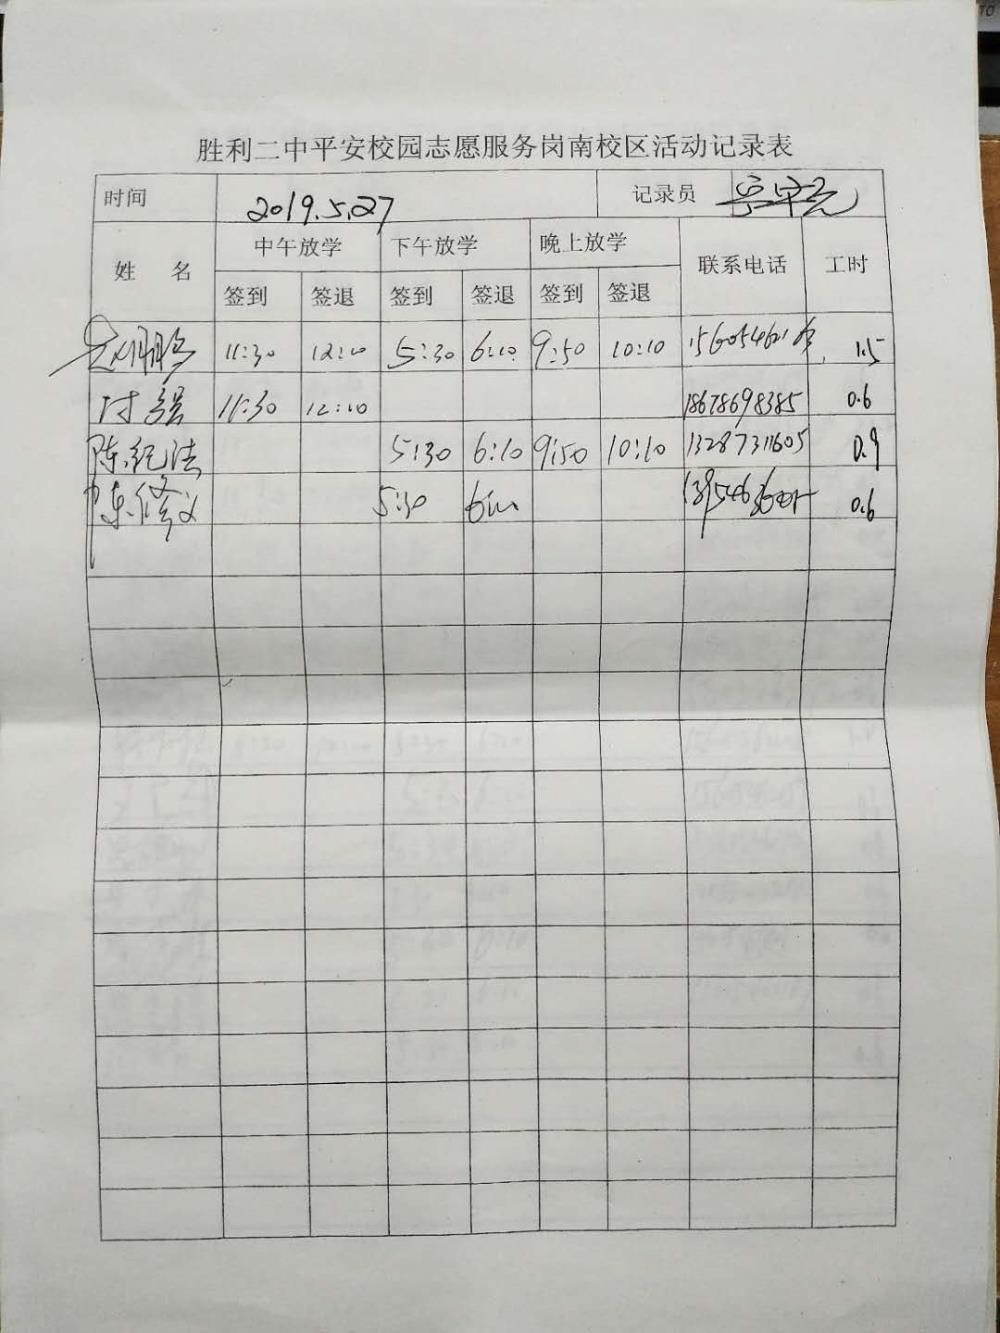 胜利二中平安校园志愿服务岗南校区活动记录表
时间 2019.5.27 记录员
姓 名 中午放学 下午放学 晚上放学 联系电话 工时
签到 签退 签到 签退 签到 签退
11:30 12:10 5:30 6:10 9:50 10:10 1.5
付强 11:30 12:10 18678698385 0.6
陈纪法 5:30 6:10 9:50 10:10 13287311605 0.9
陈修义 5:30 0.6